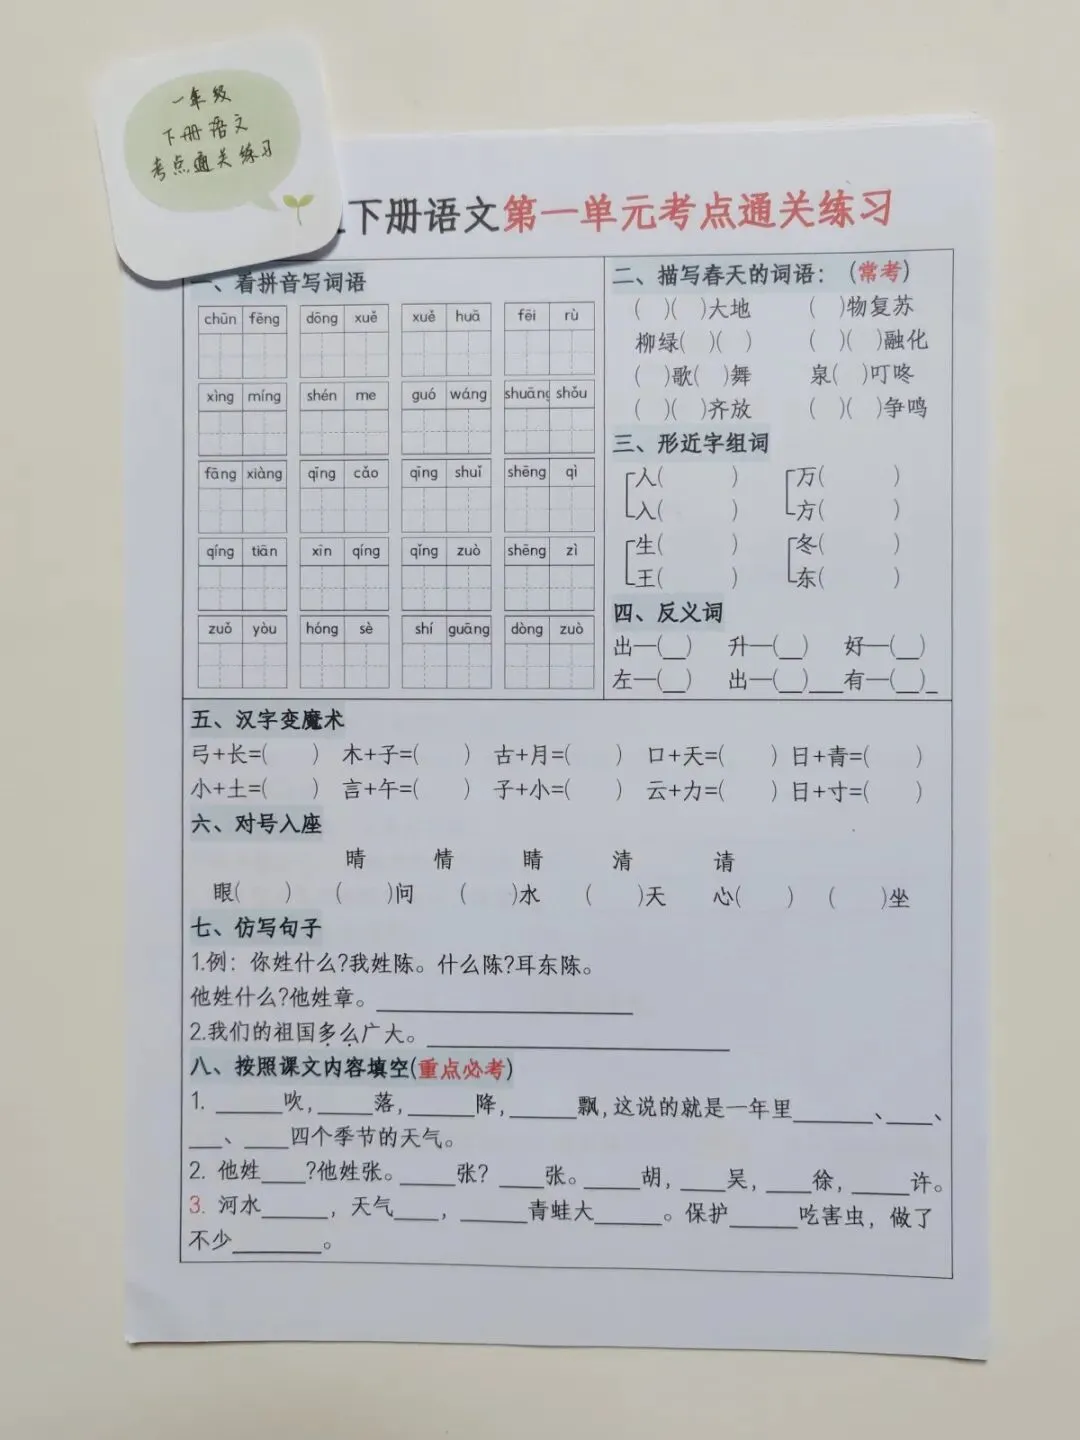 一年级
下册语文
考点通关练习
下册语文第一单元考点通关练习
一、看拼音写词语
chūn fēng dōng xuě xuě huā fēi rù
xìng míng shén me guó wáng shuāng shǒu
fāng xiàng qīng cǎo qīng shuǐ shēng qì
qíng tiān xīn qíng qǐng zuò shēng zì
zuǒ yòu hóng sè shí guāng dòng zuò
二、描写春天的词语：（常考）
( )( )大地 ( )物复苏
柳绿( )( ) ( )( )融化
( )歌( )舞 泉( )叮咚
( )( )齐放 ( )( )争鸣
三、形近字组词
人( ) 万( )
入( ) 方( )
生( ) 冬( )
王( ) 东( )
四、反义词
出—(__) 升—(__) 好—(__)
左—(__) 出—(__)___有—(__)_
五、汉字变魔术
弓+长=( ) 木+子=( ) 古+月=( ) 口+天=( ) 日+青=( )
小+土=( ) 言+午=( ) 子+小=( ) 云+力=( ) 日+寸=( )
六、对号入座
晴 情 睛 清 请
眼( ) ( )问 ( )水 ( )天 心( ) ( )坐
七、仿写句子
1.例：你姓什么?我姓陈。什么陈?耳东陈。
他姓什么?他姓章。____________
2.我们的祖国多么广大。____________
八、按照课文内容填空(重点必考)
1. ______吹,_____落,______降,______飘,这说的就是一年里_______、____、
___、____四个季节的天气。
2. 他姓____?他姓张。_____张? ____张。_____胡,____吴,____徐,_____许。
3. 河水______，天气____，______青蛙大______。保护______吃害虫，做了
不少________。